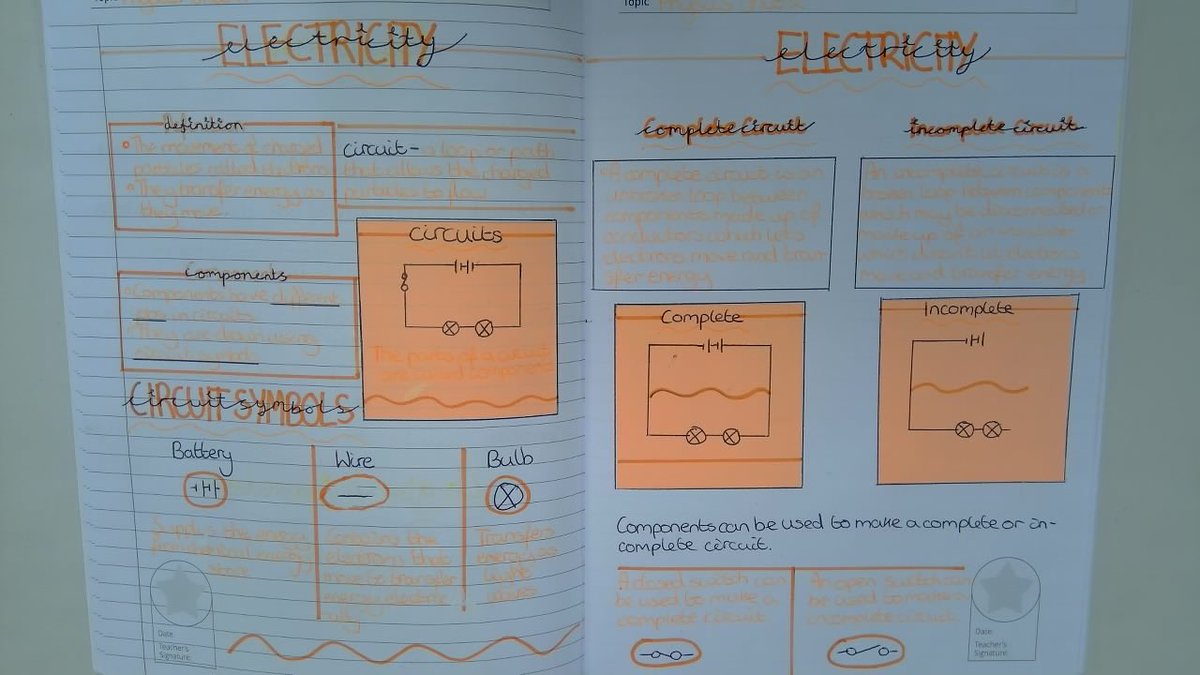 Topic
ELECTRICITY
electricity
definition
The movement of charged
particles called electrons
They transfer energy as
they move.
circuit - a loop or path
that allows the charged
particles to flow
Components
Components have different
in circuits
They are drawn using
symbols
circuits
The parts of a circuit
are called components
CIRCUIT SYMBOLS
circuit symbols
Battery
Supplys the energy
from chemical energy
store
Wire
Contains the
electrons that
move to transfer
energy
Bulb
Transfers
energy as
light
waves
Date
Teacher's
Signature:
Topic
ELECTRICITY
electricity
Complete Circuit
A complete circuit is an
unbroken loop between
components made up of
conductors which lets
electrons move and tran-
sfer energy
incomplete circuit
An incomplete circuit is a
broken loop between components
which may be disconnected or
made up of an insulator
which doesn't let electrons
move and transfer energy
Complete
Incomplete
Components can be used to make a complete or in-
complete circuit.
A closed switch can
be used to make a
complete circuit.
An open switch can
be used to make a
incomplete circuit.
Date:
Teacher's
Signature: